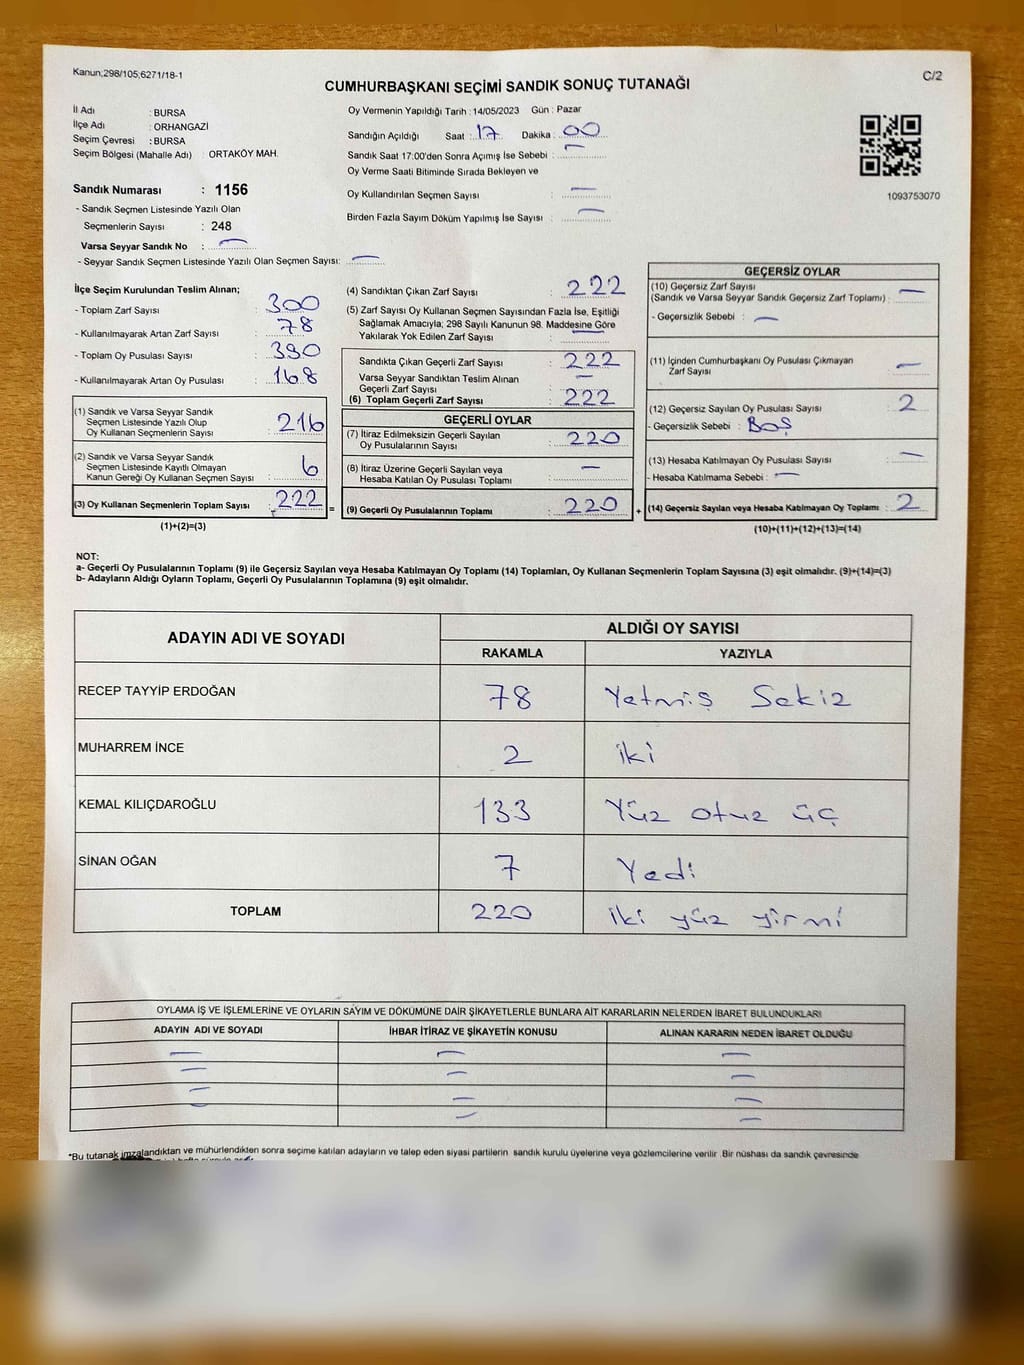 Kanun;298/105;6271/18-1
C/2
CUMHURBAŞKANI SEÇİMİ SANDIK SONUÇ TUTANAĞI
İl Adı : BURSA
İlçe Adı : ORHANGAZİ
Seçim Çevresi : BURSA
Seçim Bölgesi (Mahalle Adı) : ORTAKÖY MAH.
Sandık Numarası : 1156
- Sandık Seçmen Listesinde Yazılı Olan
Seçmenlerin Sayısı : 248
Varsa Seyyar Sandık No : —
- Seyyar Sandık Seçmen Listesinde Yazılı Olan Seçmen Sayısı: —
Oy Vermenin Yapıldığı Tarih : 14/05/2023 Gün : Pazar
Sandığın Açıldığı Saat : 17 Dakika : 00
Sandık Saat 17:00'den Sonra Açımış İse Sebebi : —
Oy Verme Saati Bitiminde Sırada Bekleyen ve
Oy Kullandırılan Seçmen Sayısı : —
Birden Fazla Sayım Döküm Yapılmış İse Sayısı : —
1093753070
İlçe Seçim Kurulundan Teslim Alınan;
- Toplam Zarf Sayısı : 300
- Kullanılmayarak Artan Zarf Sayısı : 78
- Toplam Oy Pusulası Sayısı : 390
- Kullanılmayarak Artan Oy Pusulası : 168
(1) Sandık ve Varsa Seyyar Sandık
Seçmen Listesinde Yazılı Olup
Oy Kullanan Seçmenlerin Sayısı : 216
(2) Sandık ve Varsa Seyyar Sandık
Seçmen Listesinde Kayıtlı Olmayan
Kanun Gereği Oy Kullanan Seçmen Sayısı : 6
(3) Oy Kullanan Seçmenlerin Toplam Sayısı : 222
(1)+(2)=(3)
(4) Sandıktan Çıkan Zarf Sayısı : 222
(5) Zarf Sayısı Oy Kullanan Seçmen Sayısından Fazla İse, Eşitliği
Sağlamak Amacıyla; 298 Sayılı Kanunun 98. Maddesine Göre
Yakılarak Yok Edilen Zarf Sayısı : —
Sandıkta Çıkan Geçerli Zarf Sayısı : 222
Varsa Seyyar Sandıktan Teslim Alınan
Geçerli Zarf Sayısı : —
(6) Toplam Geçerli Zarf Sayısı : 222
GEÇERLİ OYLAR
(7) İtiraz Edilmeksizin Geçerli Sayılan
Oy Pusulalarının Sayısı : 220
(8) İtiraz Üzerine Geçerli Sayılan veya
Hesaba Katılan Oy Pusulası Toplamı : —
(9) Geçerli Oy Pusulalarının Toplamı : 220
GEÇERSİZ OYLAR
(10) Geçersiz Zarf Sayısı
(Sandık ve Varsa Seyyar Sandık Geçersiz Zarf Toplamı) : —
- Geçersizlik Sebebi : —
(11) İçinden Cumhurbaşkanı Oy Pusulası Çıkmayan
Zarf Sayısı : —
(12) Geçersiz Sayılan Oy Pusulası Sayısı : 2
- Geçersizlik Sebebi : BOŞ
(13) Hesaba Katılmayan Oy Pusulası Sayısı : —
- Hesaba Katılmama Sebebi : —
(14) Geçersiz Sayılan veya Hesaba Katılmayan Oy Toplamı : 2
(10)+(11)+(12)+(13)=(14)
NOT:
a- Geçerli Oy Pusulalarının Toplamı (9) ile Geçersiz Sayılan veya Hesaba Katılmayan Oy Toplamı (14) Toplamları, Oy Kullanan Seçmenlerin Toplam Sayısına (3) eşit olmalıdır. (9)+(14)=(3)
b- Adayların Aldığı Oyların Toplamı, Geçerli Oy Pusulalarının Toplamına (9) eşit olmalıdır.
ADAYIN ADI VE SOYADI ALDIĞI OY SAYISI
RAKAMLA YAZIYLA
RECEP TAYYİP ERDOĞAN 78 Yetmiş Sekiz
MUHARREM İNCE 2 iki
KEMAL KILIÇDAROĞLU 133 Yüz otuz üç
SİNAN OĞAN 7 Yedi
TOPLAM 220 iki yüz yirmi
OYLAMA İŞ VE İŞLEMLERİNE VE OYLARIN SAYIM VE DÖKÜMÜNE DAİR ŞİKAYETLERLE BUNLARA AİT KARARLARIN NELERDEN İBARET BULUNDUKLARI
ADAYIN ADI VE SOYADI İHBAR İTİRAZ VE ŞİKAYETİN KONUSU ALINAN KARARIN NEDEN İBARET OLDUĞU
— — —
— — —
— — —
— — —
*Bu tutanak imzalandıktan ve mühürlendikten sonra seçime katılan adayların ve talep eden siyasi partilerin sandık kurulu üyelerine veya gözlemcilerine verilir .Bir nüshası da sandık çevresinde